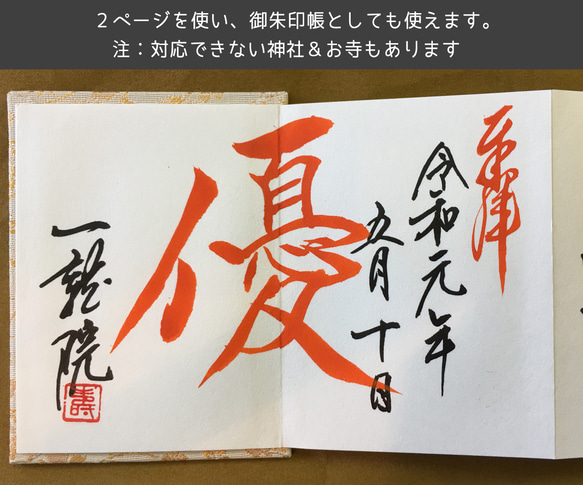 ２ページを使い、御朱印帳としても使えます。
注：対応できない神社＆お寺もあります
奉拝
令和元年
五月十日
優
一龍院